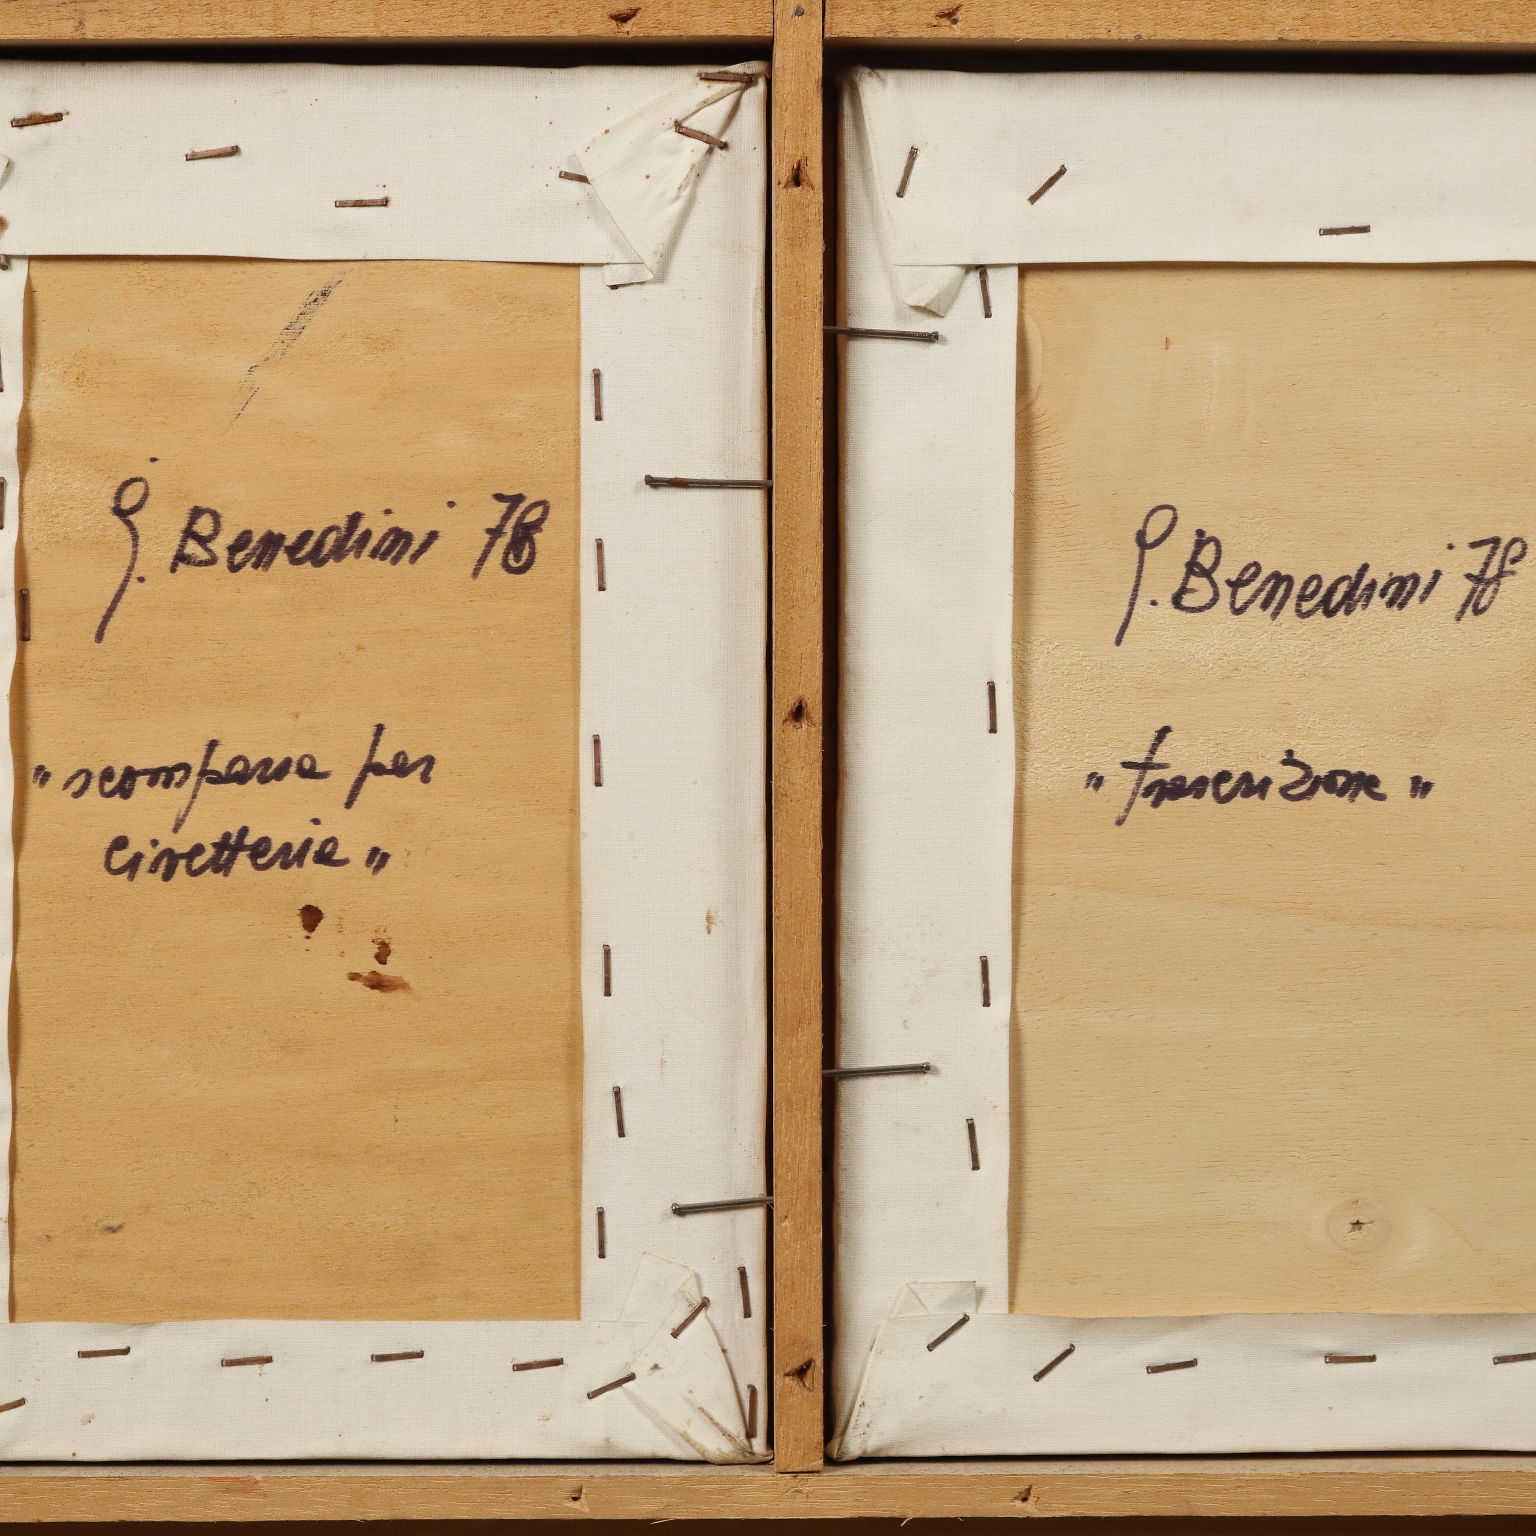 G. Benedini 78
"scomparsa per
civetteria"
G. Benedini 78
"trascrizione"